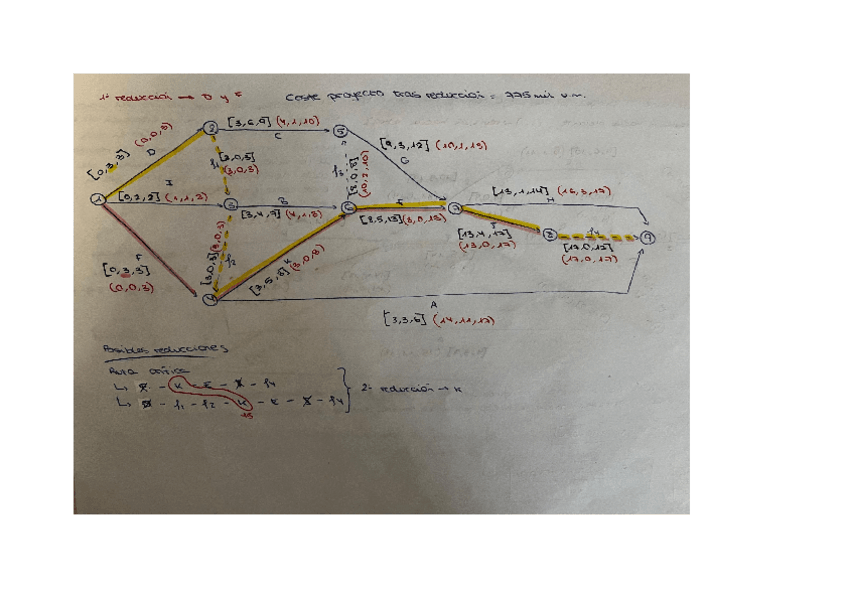 1ª reducción → D y F     Coste proyecto tras reducción = 775 mil u.m.
2 [3,6,9] (4,1,10) 5
C
[0,3,3] D (0,0,3)
f1 [3,0,3] (3,0,3)
f3 [8,0,8] (10,2,10)
[9,3,12] (10,1,13)
G
1 I [0,2,2] (1,1,3) 3 B [3,4,7] (4,1,8) 6 E [8,5,13] (8,0,13) 7
[13,1,14] (16,3,17)
H
[13,4,17] (13,0,17) 8 f4 [17,0,17] (17,0,17) 9
F [0,3,3] (0,0,3)
[3,0,3] (3,0,3) f2
[3,5,8] K (3,0,8)
4
A
[3,3,6] (14,11,17)
Posibles reducciones
Ruta crítica
↳ F - K - E - J - f4
↳ D - f1 - f2 - K - E - J - f4
15
2ª reducción → K